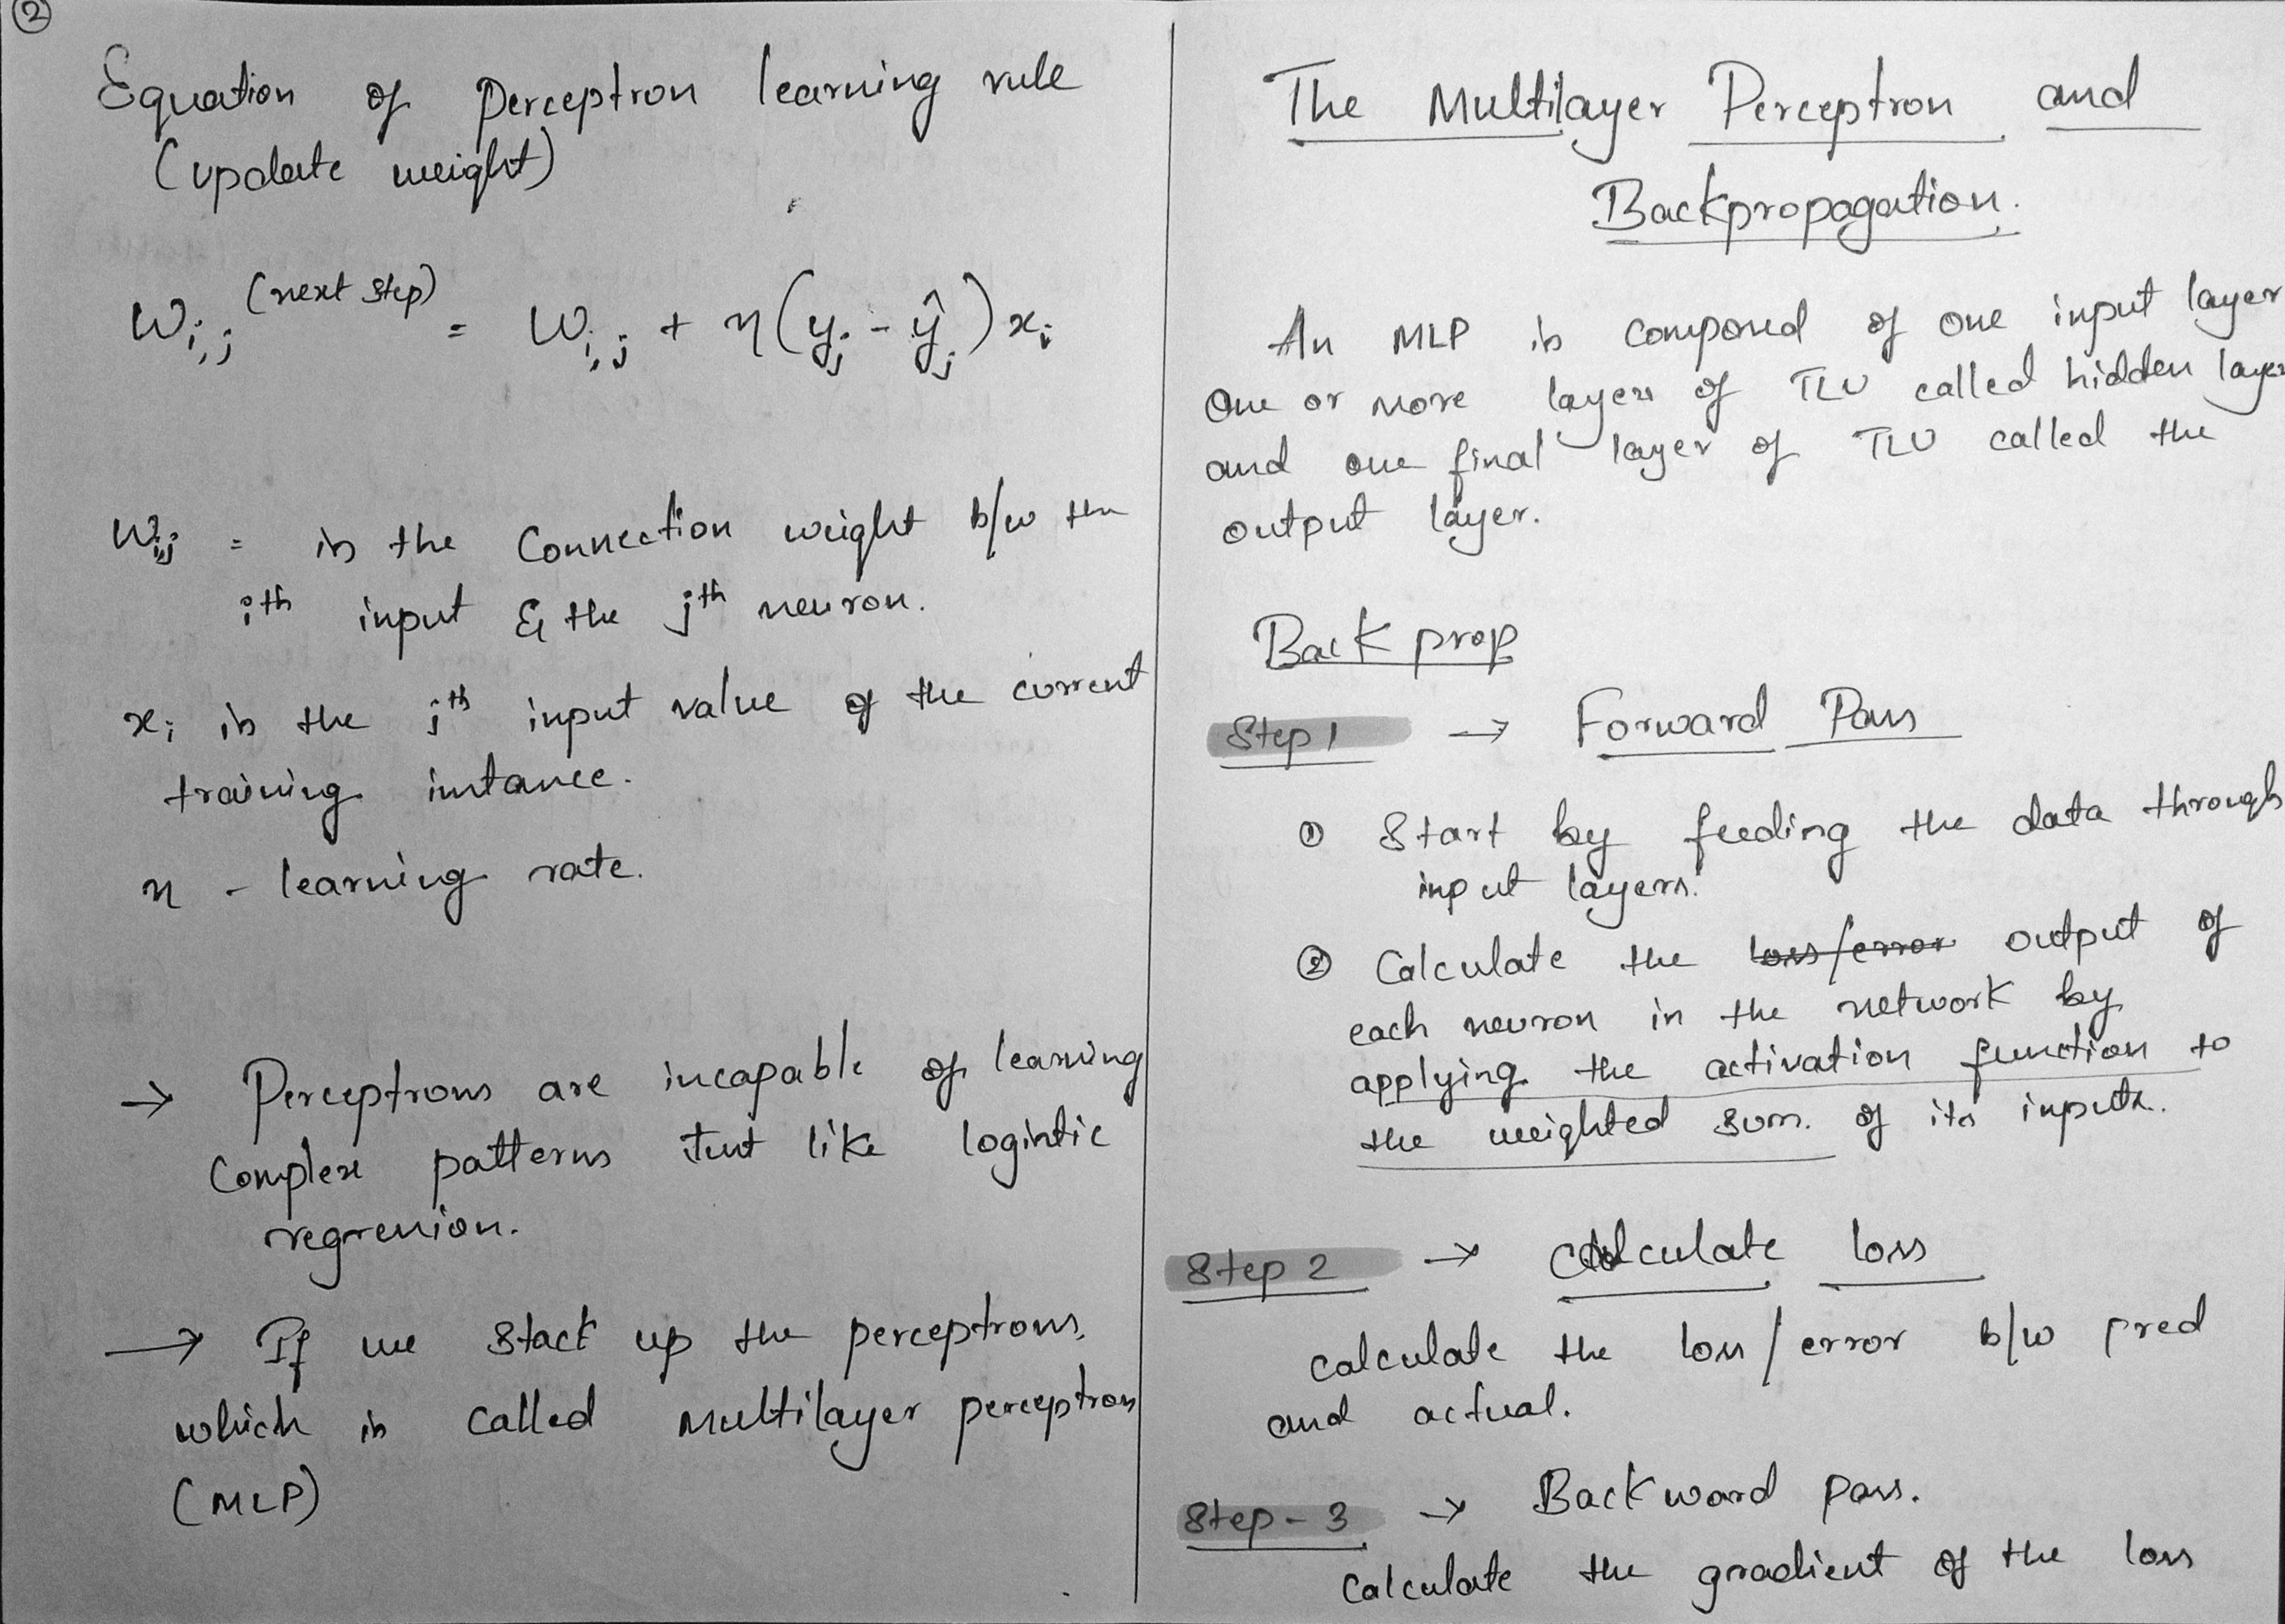 ②
Equation of perceptron learning rule
(update weight)
W i,j (next step) = W i,j + η (y j - ŷ j) x i
W i,j = is the connection weight b/w the
ith input & the jth neuron.
x i is the jth input value of the current
training instance.
η - learning rate.
→ Perceptrons are incapable of learning
complex patterns just like logistic
regression.
→ If we stack up the perceptrons.
which is called multilayer perceptron
(MLP)
The Multilayer Perceptron and
Backpropagation.
An MLP is composed of one input layer
one or more layers of TLU called hidden layer
and one final layer of TLU called the
output layer.
Back prop
Step 1 → Forward Pass
① Start by feeding the data through
input layers.
② Calculate the loss/error output of
each neuron in the network by
applying the activation function to
the weighted sum. of its inputs.
Step 2 → calculate loss
calculate the loss/error b/w pred
and actual.
Step - 3 → Backward pass.
Calculate the gradient of the loss